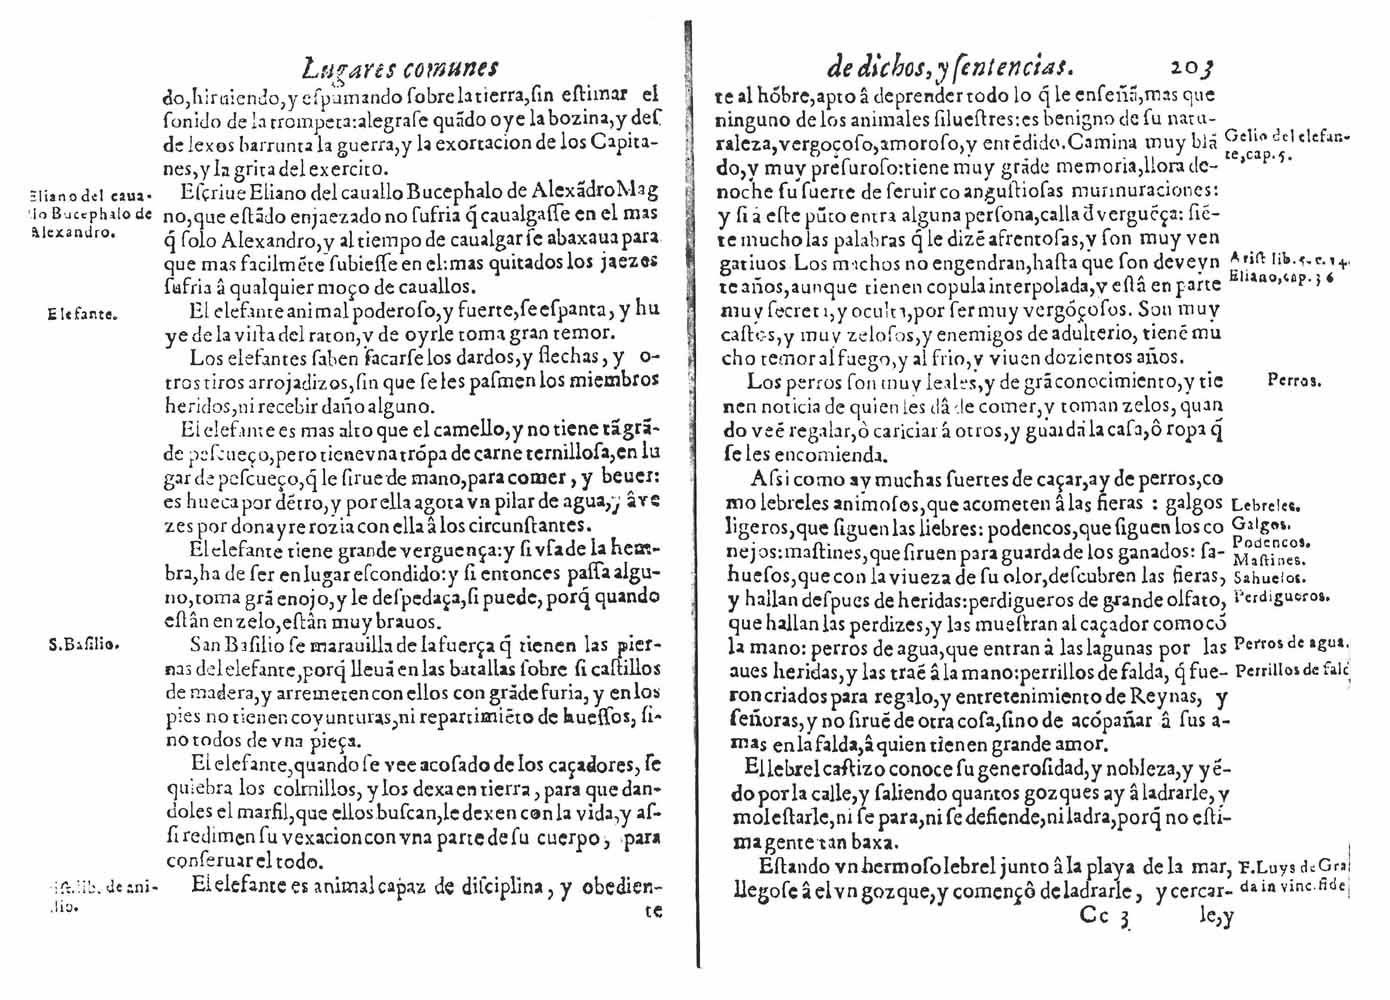 Lugares comunes
do, hiruiendo, y espumando sobre la tierra, sin estimar el
sonido de la trompeta: alegrase quãdo oye la bozina, y des
de lexos barrunta la guerra, y la exortacion de los Capita-
nes, y la grita del exercito.
Eliano del caua-
llo Bucephalo de
Alexandro.
Escriue Eliano del cauallo Bucephalo de Alexãdro Mag
no, que estãdo enjaezado no sufria q̃ caualgasse en el mas
q̃ solo Alexandro, y al tiempo de caualgar se abaxaua para
que mas facilmẽte subiesse en el: mas quitados los jaezes
sufria â qualquier moço de cauallos.
Elefante.
El elefante animal poderoso, y fuerte, se espanta, y hu
ye de la vista del raton, y de oyrle toma gran temor.
Los elefantes saben sacarse los dardos, y flechas, y o-
tros tiros arrojadizos, sin que se les pasmen los miembros
heridos, ni recebir daño alguno.
El elefante es mas alto que el camello, y no tiene tã grã-
de pescueço, pero tiene vna trõpa de carne ternillosa, en lu
gar de pescueço, q̃ le sirue de mano, para comer, y beuer:
es hueca por dẽtro, y por ella agota vn pilar de agua, y â ve
zes por donayre rozia con ella â los circunstantes.
El elefante tiene grande verguença: y si vsa de la hem-
bra, ha de ser en lugar escondido: y si entonces passa algu-
no, toma grã enojo, y le despedaça, si puede, porq̃ quando
estân en zelo, estân muy brauos.
S. Basilio.
San Basilio se marauilla de la fuerça q̃ tienen las pier-
nas del elefante, porq̃ lleuã en las batallas sobre si castillos
de madera, y arremeten con ellos con grãde furia, y en los
pies no tienen coyunturas, ni repartimiẽto de huessos, si-
no todos de vna pieça.
El elefante, quando se vee acosado de los caçadores, se
quiebra los colmillos, y los dexa en tierra, para que dan-
doles el marfil, que ellos buscan, le dexen con la vida, y as-
si redimen su vexacion con vna parte de su cuerpo, para
conseruar el todo.
lib. de ani-
El elefante es animal capaz de disciplina, y obedien-
te
de dichos, y sentencias. 203
te al hõbre, apto â deprender todo lo q̃ le enseñã, mas que
ninguno de los animales siluestres: es benigno de su natu-
raleza, vergoçoso, amoroso, y entẽdido. Camina muy blã
do, y muy presuroso: tiene muy grãde memoria, llora de-
noche su suerte de seruir co angustiosas murmuraciones:
y si â este pũto entra alguna persona, calla d̃ verguẽça: siẽ-
te mucho las palabras q̃ le dizẽ afrentosas, y son muy ven
gatiuos. Los machos no engendran, hasta que son de veyn
te años, aunque tienen copula interpolada, y estâ en parte
muy secreta, y oculta, por ser muy vergõçosos. Son muy
castos, y muy zelosos, y enemigos de adulterio, tienẽ mu
cho temor al fuego, y al frio, y viuen dozientos años.
Gelio del elefan-
te, cap. 5.
Arist lib. 5. c. 14.
Eliano, cap. 36
Los perros son muy leales, y de grã conocimiento, y tie
nen noticia de quien les dâ de comer, y toman zelos, quan
do veẽ regalar, ò cariciar â otros, y guardã la casa, ô ropa q̃
se les encomienda.
Perros.
Assi como ay muchas suertes de caçar, ay de perros, co
mo lebreles animosos, que acometen â las fieras: galgos
ligeros, que siguen las liebres: podencos, que siguen los co
nejos: mastines, que siruen para guarda de los ganados: sa-
huesos, que con la viueza de su olor, descubren las fieras,
y hallan despues de heridas: perdigueros de grande olfato,
que hallan las perdizes, y las muestran al caçador como cõ
la mano: perros de agua, que entran à las lagunas por las
aues heridas, y las traẽ â la mano: perrillos de falda, q̃ fue-
ron criados para regalo, y entretenimiento de Reynas, y
señoras, y no siruẽ de otra cosa, sino de acõpañar â sus a-
mas en la falda, â quien tienen grande amor.
Lebreles.
Galgos.
Podencos.
Mastines.
Sahuelos.
Perdigueros.
Perros de agua.
Perrillos de fald
El lebrel castizo conoce su generosidad, y nobleza, y yẽ-
do por la calle, y saliendo quantos gozques ay â ladrarle, y
molestarle, ni se para, ni se defiende, ni ladra, porq̃ no esti-
ma gente tan baxa.
Estando vn hermoso lebrel junto â la playa de la mar,
llegose â el vn gozque, y començô de ladrarle, y cercar-
F. Luys de Gra
da in vinc. fide
Cc 3 le, y